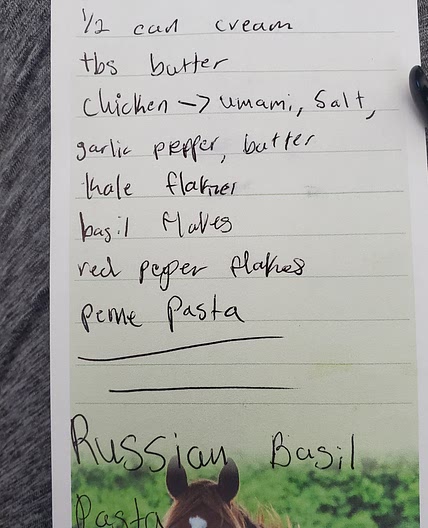 1/2 can cream
tbs butter
chicken -> umami, salt,
garlic pepper, butter
kale flakes
basil flakes
red pepper flakes
penne pasta
Russian Basil
Pasta